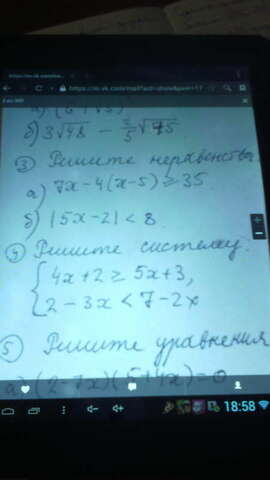 б) 3√48 - 2/5 √75
③ Решите неравенства:
а) 7x-4(x-5) ≥ 35
б) |5x-2| < 8
④ Решите систему:
{ 4x+2 ≥ 5x+3,
2-3x < 7-2x
⑤ Решите уравнения
а) (2-7x)(5+4x)=0
18:58